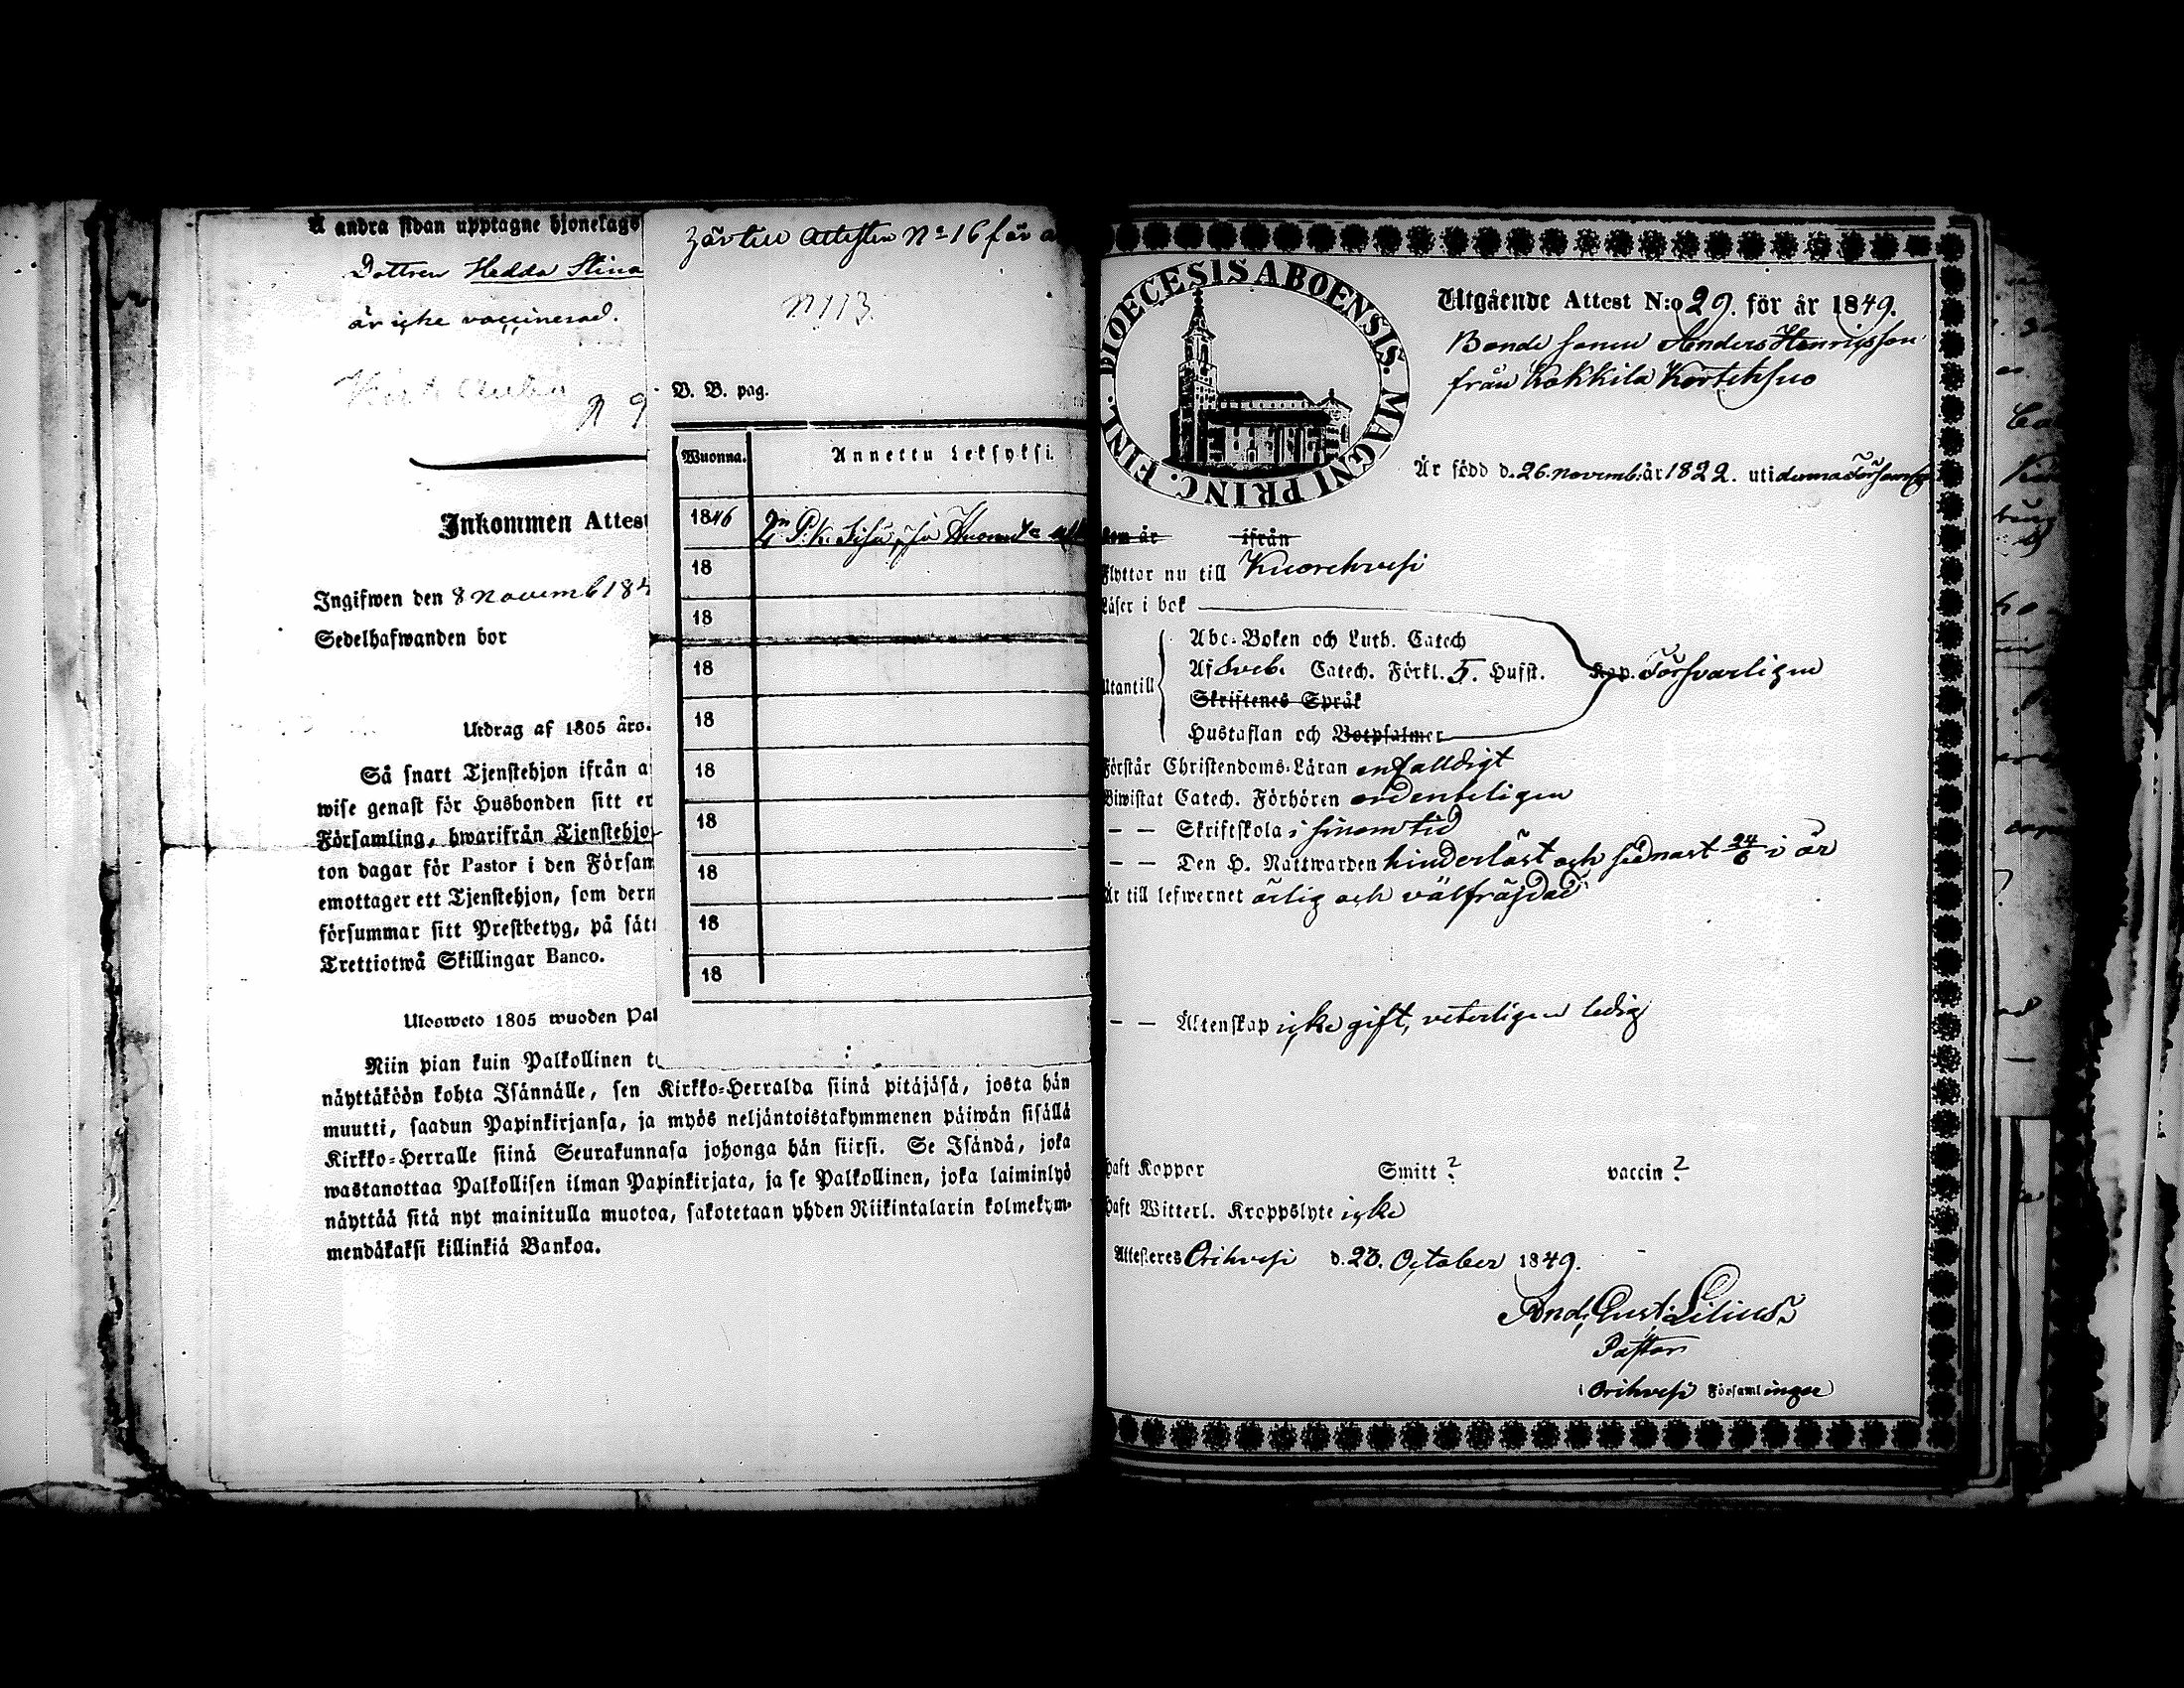 å andra sidan upptagne hjonelags
Dottren Hedda Stina
är icke vaccinerad.
N 9
Inkommen Attest
Ingifwen den 8 novemb 184
Sedelhafwanden bor
Utdrag af 1805 års
Så snart Tjenstehjon ifrån a
wise genast för Husbonden sitt er
Församling, hwarifrån Tjenstehjo
ton dagar för Pastor i den Försam
emottager ett Tjenstehjon, som dern
försummar sitt Prestbetyg, på sätt
Trettiotwå Skillingar Banco.
Ulosweto 1805 wuoden Pal
Niin pian kuin Palkollinen t
näyttäköön kohta Isännälle, sen Kirkko-Herralda siinä pitäjäsä, josta hän
muutti, saadun Papinkirjansa, ja myös neljäntoistakymmenen päiwän sisällä
Kirkko-Herralle siinä Seurakunnasa johonga hän siirsi. Se Isändä, joka
wastanottaa Palkollisen ilman Papinkirjata, ja se Palkollinen, joka laiminlyö
näyttää sitä nyt mainitulla muotoa, sakotetaan yhden Riikintalarin kolmekym-
mendäkaksi killinkiä Bankoa.
hör till Attesten No 16 för a
N 113
B. B. pag.
Wuonna. Annettu Leksyksi.
1846 P. K.
18
18
18
18
18
18
18
18
18
DIOECESIS ABOENSIS. MAGNI PRINC. FINL.
Utgående Attest N:o 29. för år 1849.
Bonde sonen Anders Henricsson
från Kokkila Kortehsuo
Är född d. 26. novemb. år 1822. uti denna Församl.
kom år ifrån
Flyttar nu till Kuorehvesi
Läser i bok
Abc-Boken och Luth. Catech
Utantill Af Sveb. Catech. Förkl. 5. Hufst. Kap. Försvarligen
Skriftenes Språk
Hustaflan och Botpsalmer
Förstår Christendoms-Läran enfalldigt
Biwistat Catech. Förhören ordenteligen
— — Skriftskola i sinom tid
— — Den H. Nattwarden hinderlöst och sednast 24/6 i år
Är till lefwernet ärlig och välfräjdad
— — Äktenskap icke gift, veterligen ledig
haft Koppor Smitt ? vaccin ?
haft Witterl. Kroppslyte icke
Attesteres Orihvesi d. 23. October 1849.
And. Gust. Lilius
Pastor
i Orihvesi Församlingar